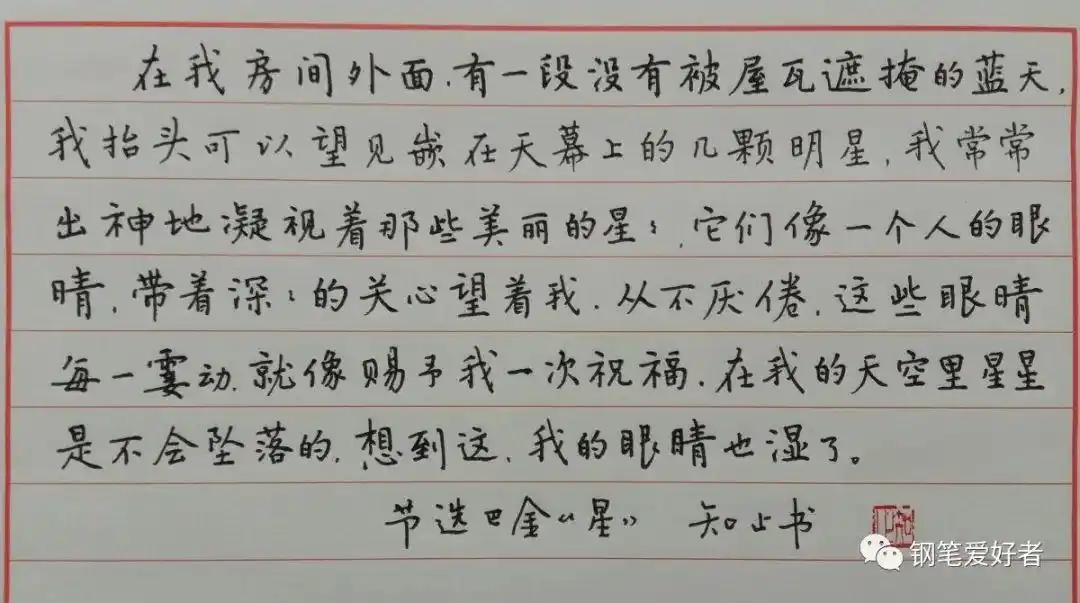 在我房间外面,有一段没有被屋瓦遮掩的蓝天,
我抬头可以望见嵌在天幕上的几颗明星,我常常
出神地凝视着那些美丽的星:,它们像一个人的眼
睛,带着深:的关心望着我,从不厌倦,这些眼睛
每一霎动,就像赐予我一次祝福,在我的天空里星星
是不会坠落的,想到这,我的眼睛也湿了。
节选巴金“星” 知止书
钢笔爱好者